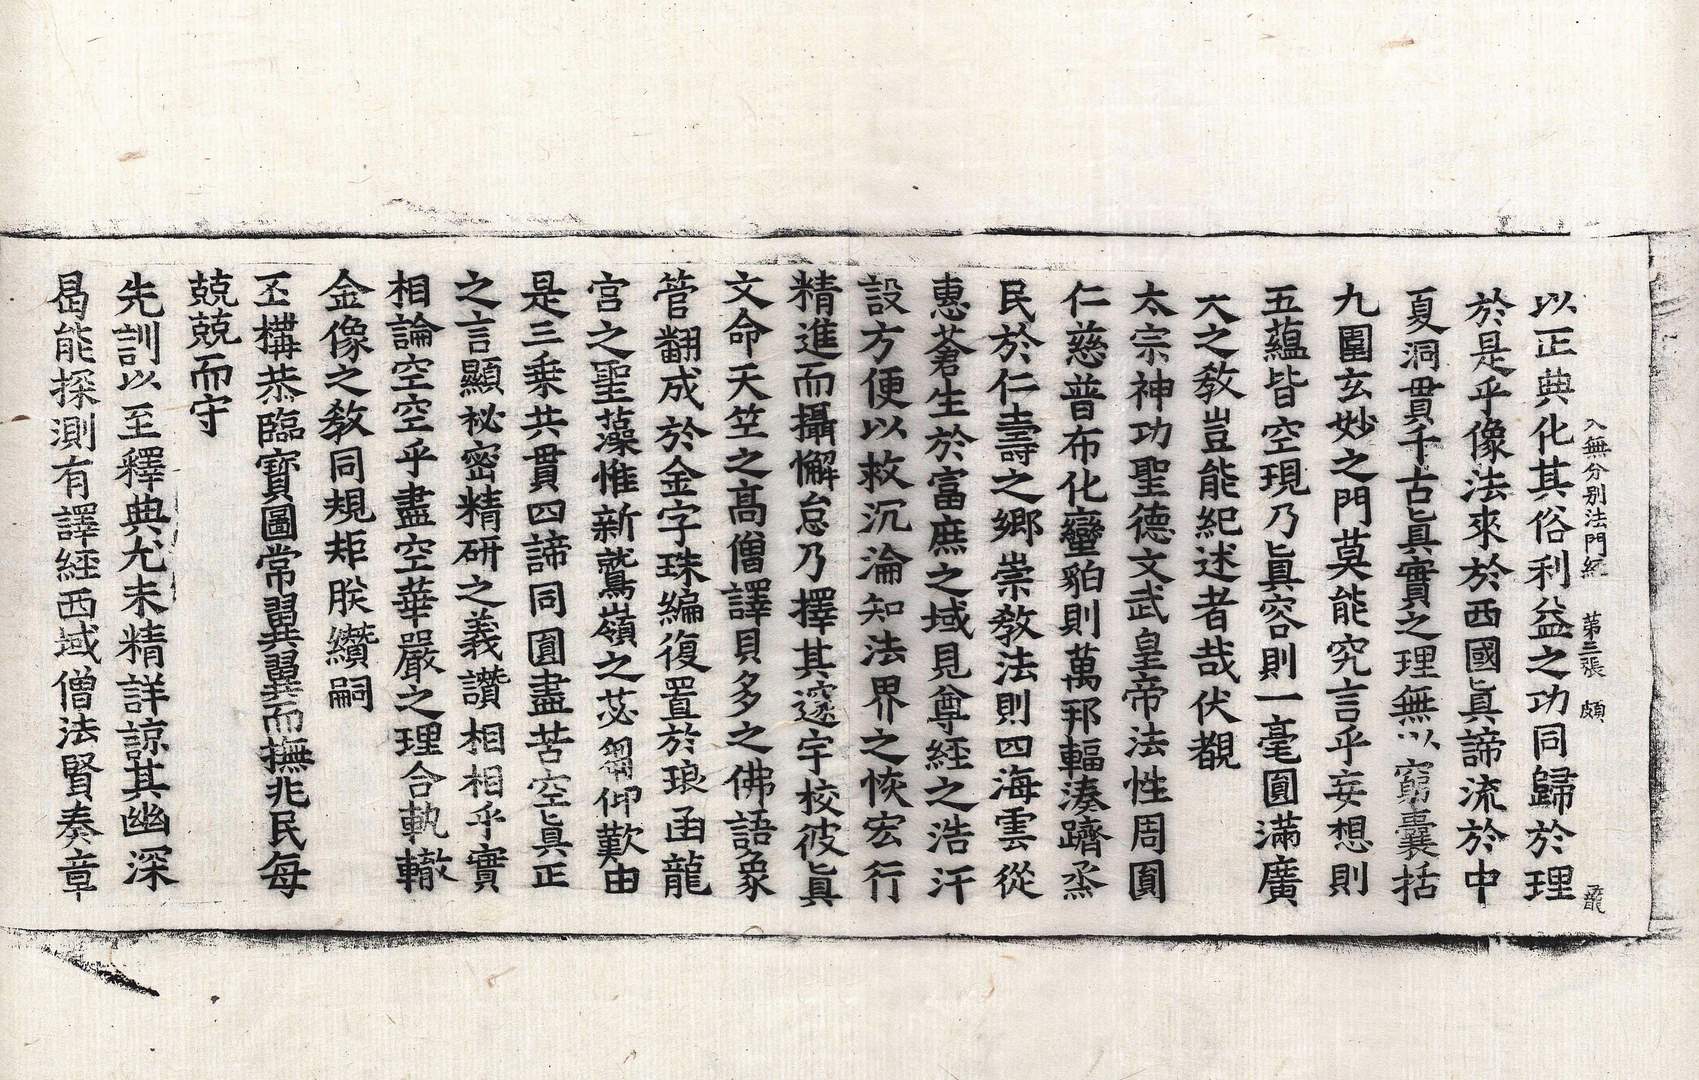 入無分別法門經 第三張 頗
以正典化其俗利益之功同歸於理
於是乎像法來於西國眞諦流於中
夏洞貫千古眞實之理無以窮囊括
九圍玄妙之門莫能究言乎妄想則
五蘊皆空現乃眞容則一毫圓滿廣
大之敎豈能紀述者哉伏覩
太宗神功聖德文武皇帝法性周圓
仁慈普布化蠻貊則萬邦輻湊躋烝
民於仁壽之鄉崇敎法則四海雲從
惠蒼生於富庶之域見尊經之浩汗
設方便以救沉淪知法界之恢宏行
精進而攝懈怠乃擇其邃宇校彼眞
文命天竺之高僧譯貝多之佛語象
管翻成於金字珠編復置於琅函龍
宮之聖藻惟新鷲嶺之苾芻仰歎由
是三乘共貫四諦同圓盡苦空眞正
之言顯秘密精硏之義讚相相乎實
相論空空乎盡空華嚴之理合軌轍
金像之敎同規矩朕纘嗣
丕構恭臨寶圖常翼翼而撫兆民每
兢兢而守
先訓以至釋典尤未精詳諒其幽深
曷能探測有譯經西域僧法賢奏章